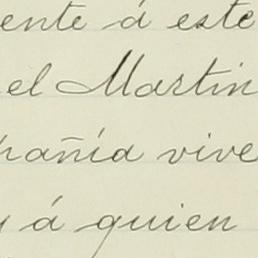 ente á este
el Martin
pañía vive
y á quien